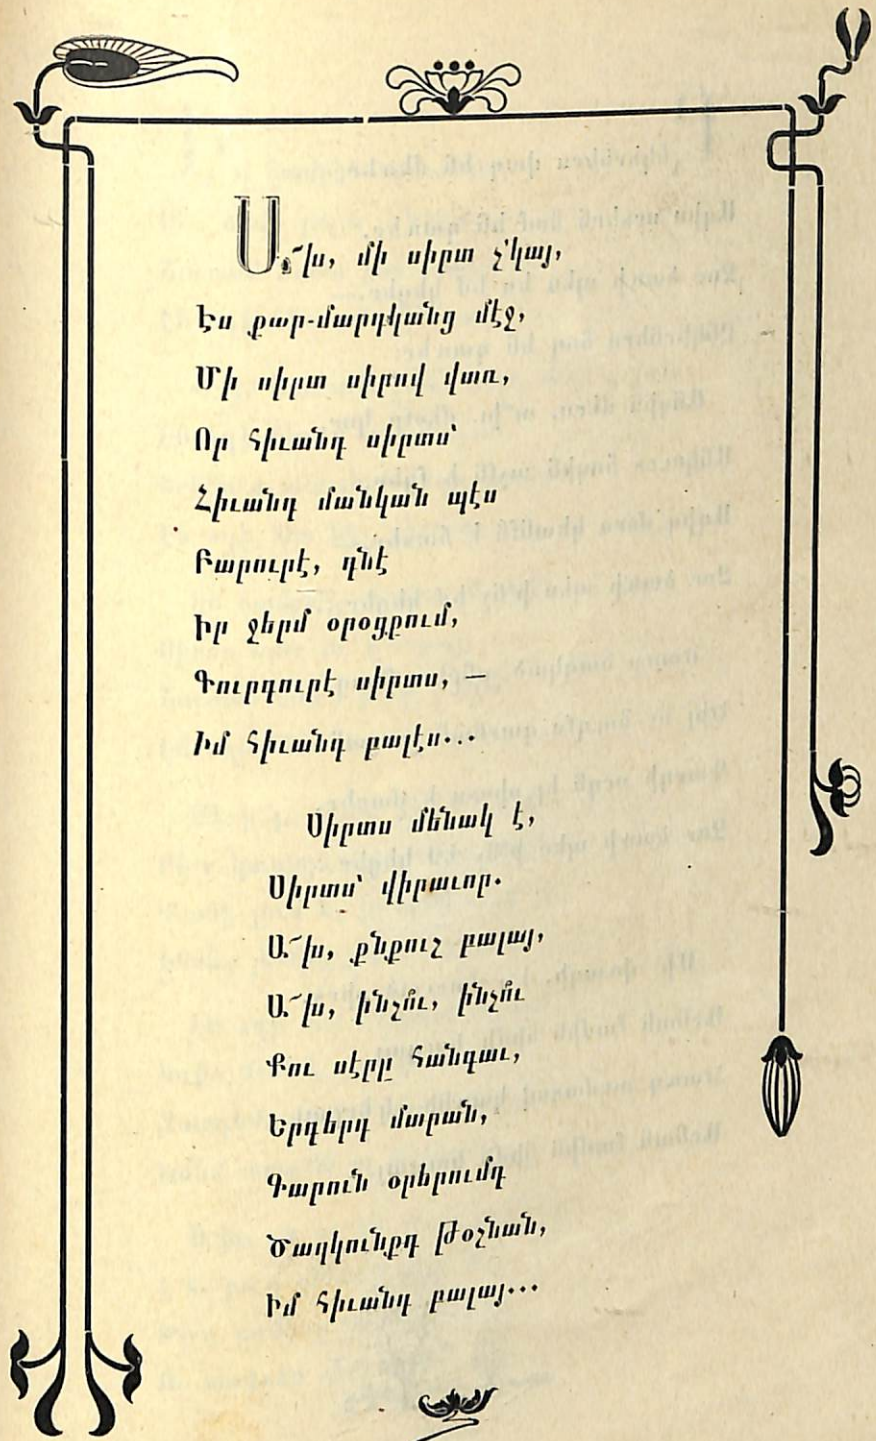 Ա՜խ, մի սիրտ չ՚կայ,
Էս քար-մարդկանց մէջ,
Մի սիրտ սիրով վառ,
Որ հիւանդ սիրտս՝
Հիւանդ մանկան պէս
Բարուրէ, դնէ
Իր ջերմ օրօցքում,
Գուրգուրէ սիրտս, —
Իմ հիւանդ բալէս...
Սիրտս մենակ է,
Սիրտս՝ վիրաւոր.
Ա՜խ, քնքուշ բալայ,
Ա՜խ, ինչո՞ւ, ինչո՞ւ
Քու սէրը հանգաւ,
Երգերդ մարան,
Գարուն օրերումդ
Ծաղկունքդ թօշնան,
Իմ հիւանդ բալայ...